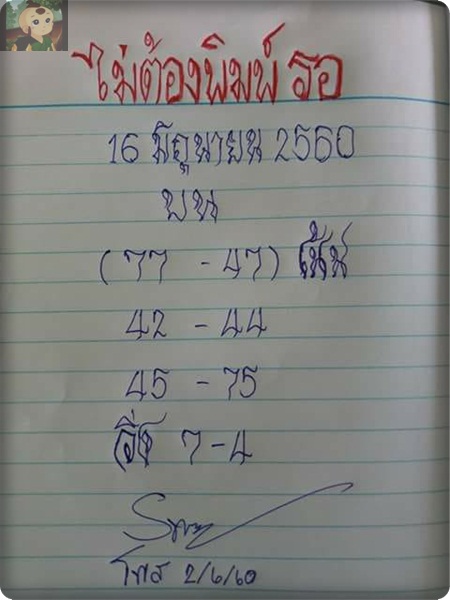 ไม่ต้องพิมพ์ รอ
16 มิถุนายน 2560
บน
(77 - 47) เน้น
42 - 44
45 - 75
วิ่ง 7-4
โพส 2/6/60